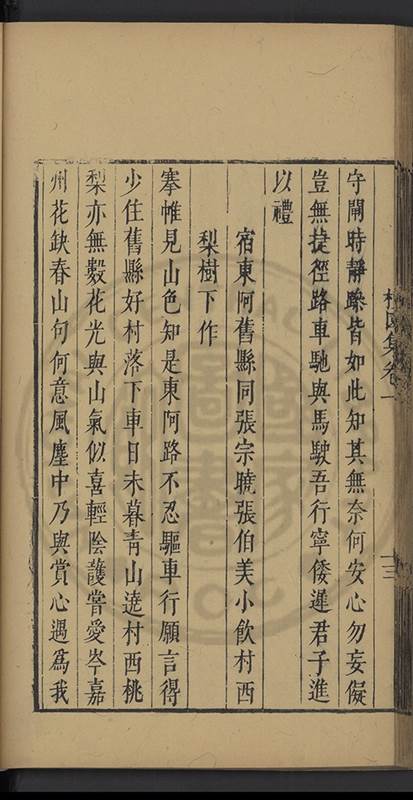 守閘時靜躁皆如此知其無奈何安心勿妄儗
豈無捷徑路車馳與馬駛吾行寧倭遲君子進
以禮
宿東阿舊縣同張宗曉張伯美小飲村西
梨樹下作
搴帷見山色知是東阿路不忍驅車行願言得
少住舊縣好村落下車日未暮青山遶村西桃
梨亦無數花光與山氣似喜輕陰護嘗愛岑嘉
州花缺春山句何意風塵中乃與賞心遇爲我
集卷一
十三